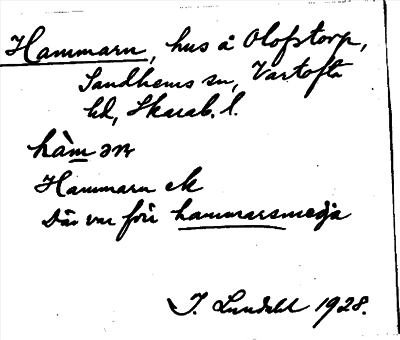 Hammarn, hus å Olofstorp,
Sandhems sn, Vartofta
hd, Skarab. l.
hàm ən
Hammarn ek
Där var förr hammarsmedja
I. Lundahl 1928.